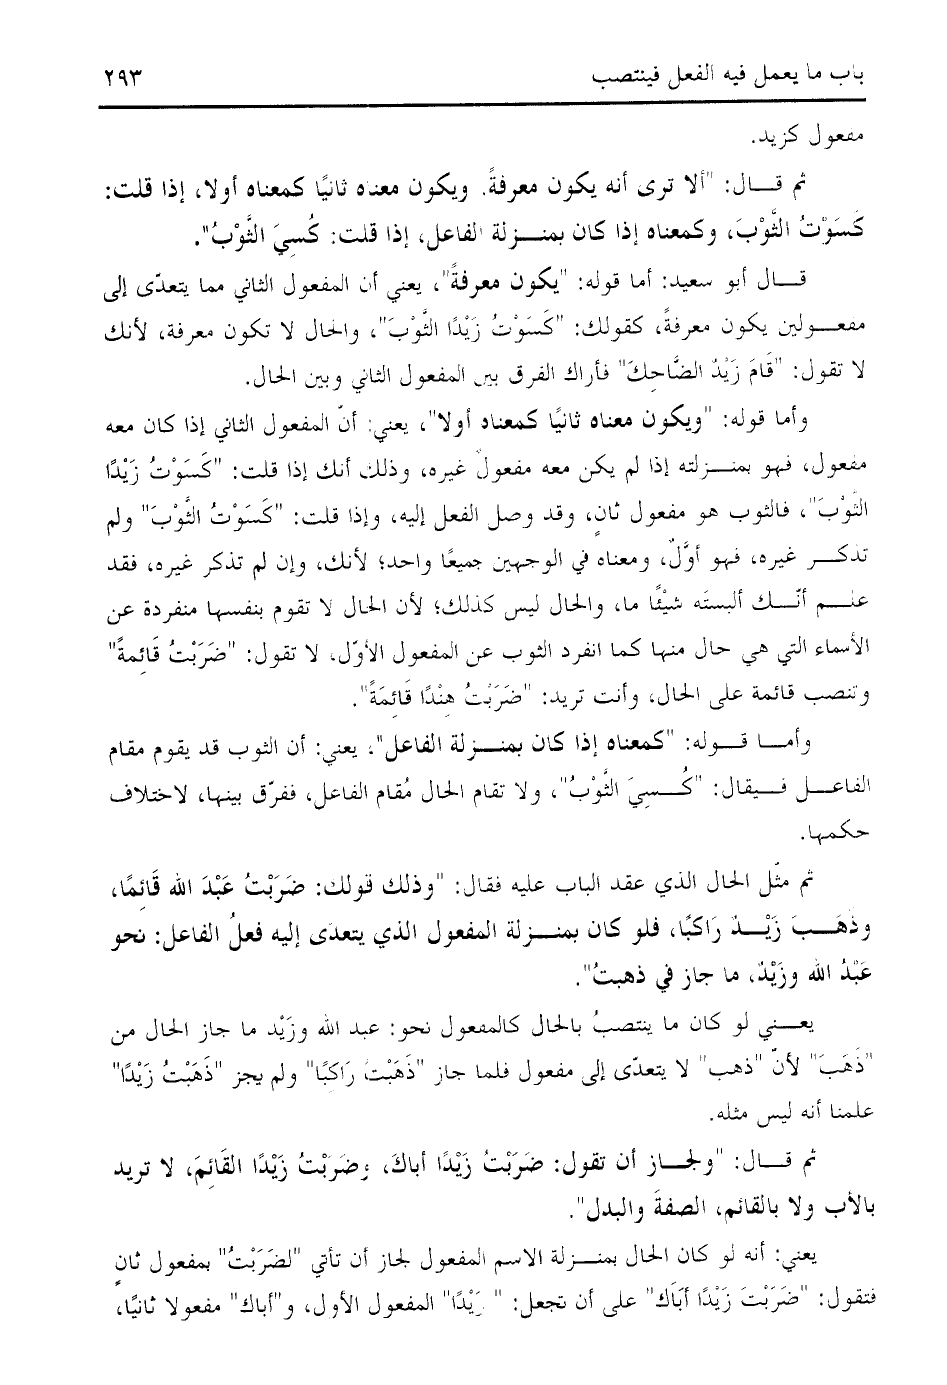 باب ما يعمل فيه الفعل فينتصب ٢٩٣
مفعول كزيد.
ثم قـــال: "ألا ترى أنه يكون معرفةً. ويكون معناه ثانيًا كمعناه أولا، إذا قلت:
كَسَوْتُ الثَّوْبَ، وكمعناه إذا كان بمنـــزلة الفاعل، إذا قلت: كُسِيَ الثَّوْبُ".
قـــال أبو سعيد: أما قوله: "يكون معرفةً"، يعني أن المفعول الثاني مما يتعدّى إلى
مفعـــولين يكون معرفةً، كقولك: "كَسَوْتُ زَيْدًا الثَّوْبَ"، والحال لا تكون معرفة، لأنك
لا تقول: "قَامَ زَيْدٌ الضَّاحِكَ" فأراك الفرق بين المفعول الثاني وبين الحال.
وأما قوله: "ويكون معناه ثانيًا كمعناه أولا"، يعني: أنّ المفعول الثاني إذا كان معه
مفعول، فهو بمنـــزلته إذا لم يكن معه مفعولٌ غيره، وذلك أنك إذا قلت: "كَسَوْتُ زَيْدًا
الثَّوْبَ"، فالثوب هو مفعول ثانٍ، وقد وصل الفعل إليه، وإذا قلت: "كَسَوْتُ الثَّوْبَ" ولم
تذكـــر غيره، فهو أوَّلٌ، ومعناه في الوجهين جميعًا واحد؛ لأنك، وإن لم تذكر غيره، فقد
علـــم أنّـــك ألبستَه شيْئًا ما، والحال ليس كذلك؛ لأن الحال لا تقوم بنفسها منفردة عن
الأسماء التي هي حال منها كما انفرد الثوب عن المفعول الأوّل، لا تقول: "ضَرَبْتُ قَائِمةً"
وتنصب قائمة على الحال، وأنت تريد: "ضَرَبْتُ هِنْدًا قَائِمَةً".
وأمـــا قـــوله: "كمعناه إذا كان بمنـــزلة الفاعل"، يعني: أن الثوب قد يقوم مقام
الفاعـــل فـــيقال: "كُـــسِيَ الثَّوْبُ"، ولا تقام الحال مُقام الفاعل، ففرّق بينها، لاختلاف
حكمها.
ثم مثّل الحال الذي عقد الباب عليه فقال: "وذلك قولك: ضَرَبْتُ عَبْدَ الله قَائِمًا،
وذَهَـــبَ زَيْـــدٌ رَاكبًا، فلو كان بمنـــزلة المفعول الذي يتعدّى إليه فعلُ الفاعل: نحو
عَبْدُ الله وزَيْدٌ، ما جاز في ذهبتُ".
يعـــني لو كان ما ينتصبُ بالحال كالمفعول نحو: عبد الله وزَيْد ما جاز الحال من
"ذَهَبَ" لأنّ "ذهب" لا يتعدّى إلى مفعول فلما جاز "ذَهَبْتُ رَاكبًا" ولم يجز "ذَهَبْتُ زَيْدًا"
علمنا أنه ليس مثله.
ثم قـــال: "ولجـــاز أن تقول: ضَرَبْتُ زَيْدًا أباكَ، وضَرَبْتُ زَيْدًا القَائِمَ، لا تريد
بالأب ولا بالقائم، الصفةَ والبدل".
يعني: أنه لو كان الحال بمنـــزلة الاسم المفعول لجاز أن تأتي "لضَرَبْتُ" بمفعول ثانٍ
فتقول: "ضَرَبْتَ زَيْدًا أبَاك" على أن تجعل: "زَيْدًا" المفعول الأول، و"أباك" مفعولا ثانيًا،